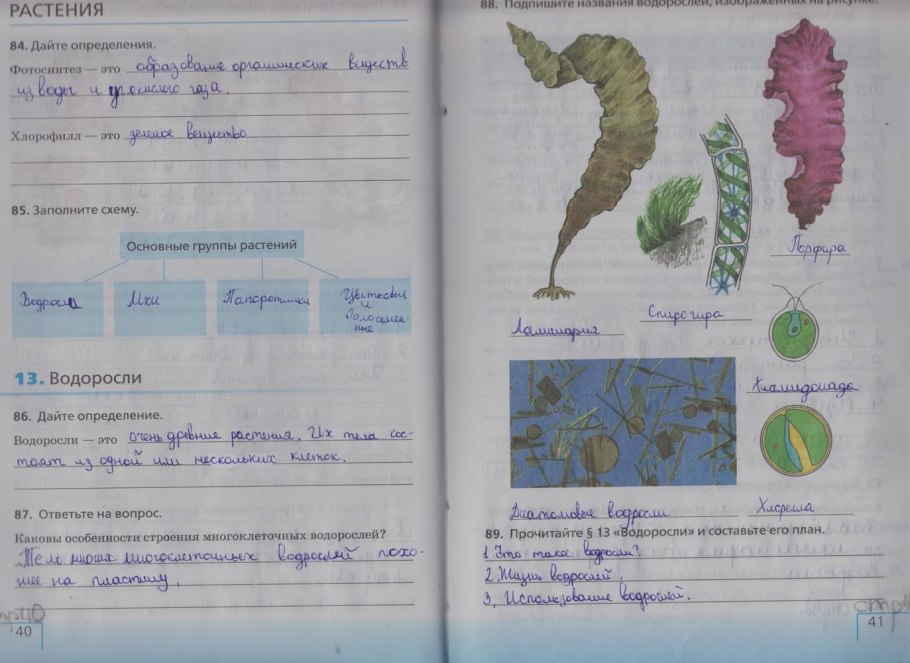 РАСТЕНИЯ
84. Дайте определения.
Фотосинтез — это образование органических веществ
из воды и углекислого газа.
Хлорофилл — это зеленое вещество
85. Заполните схему.
Основные группы растений
Водросли
Мхи
Папоротники
Цветковые
и
Голосемен-
ные
13. Водоросли
86. Дайте определение.
Водоросли — это очень древние растения. Их тела сос-
тоят из одной или нескольких клеток.
87. Ответьте на вопрос.
Каковы особенности строения многоклеточных водорослей?
Тело многих многоклеточных водрослей похо-
жее на пластину.
стр40
40
88. Подпишите названия водорослей, изображенных на рисунке.
Порфира
Спирогира
Ламинария
Хламидонада
Диатомовые водросли
Хлорелла
89. Прочитайте § 13 «Водоросли» и составьте его план.
1. Что такое водросли?
2. Жизнь водрослей.
3. Использование водрослей.
41